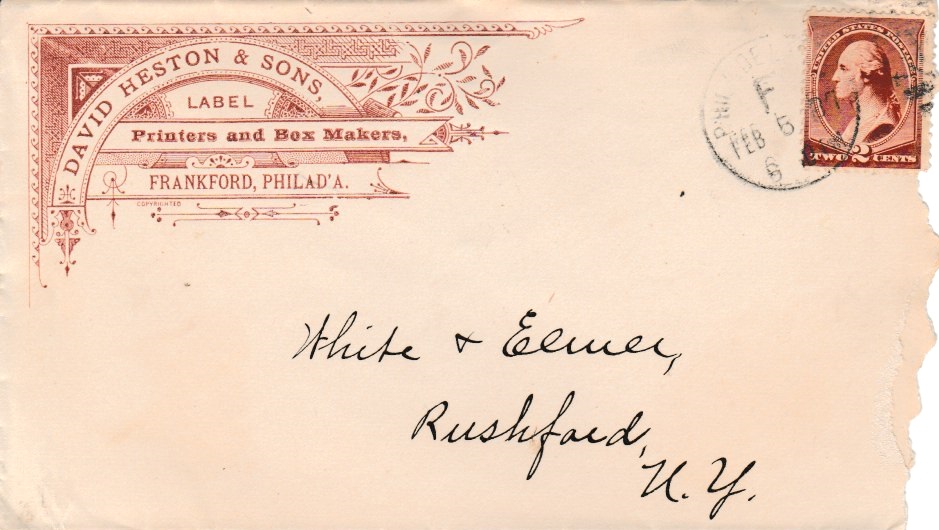 DAVID HESTON & SONS,
LABEL
Printers and Box Makers,
FRANKFORD, PHILAD'A.
COPYRIGHTED
F
FEB 5
6
UNITED STATES POSTAGE
TWO 2 CENTS
White & Elmer,
Rushford,
N.Y.